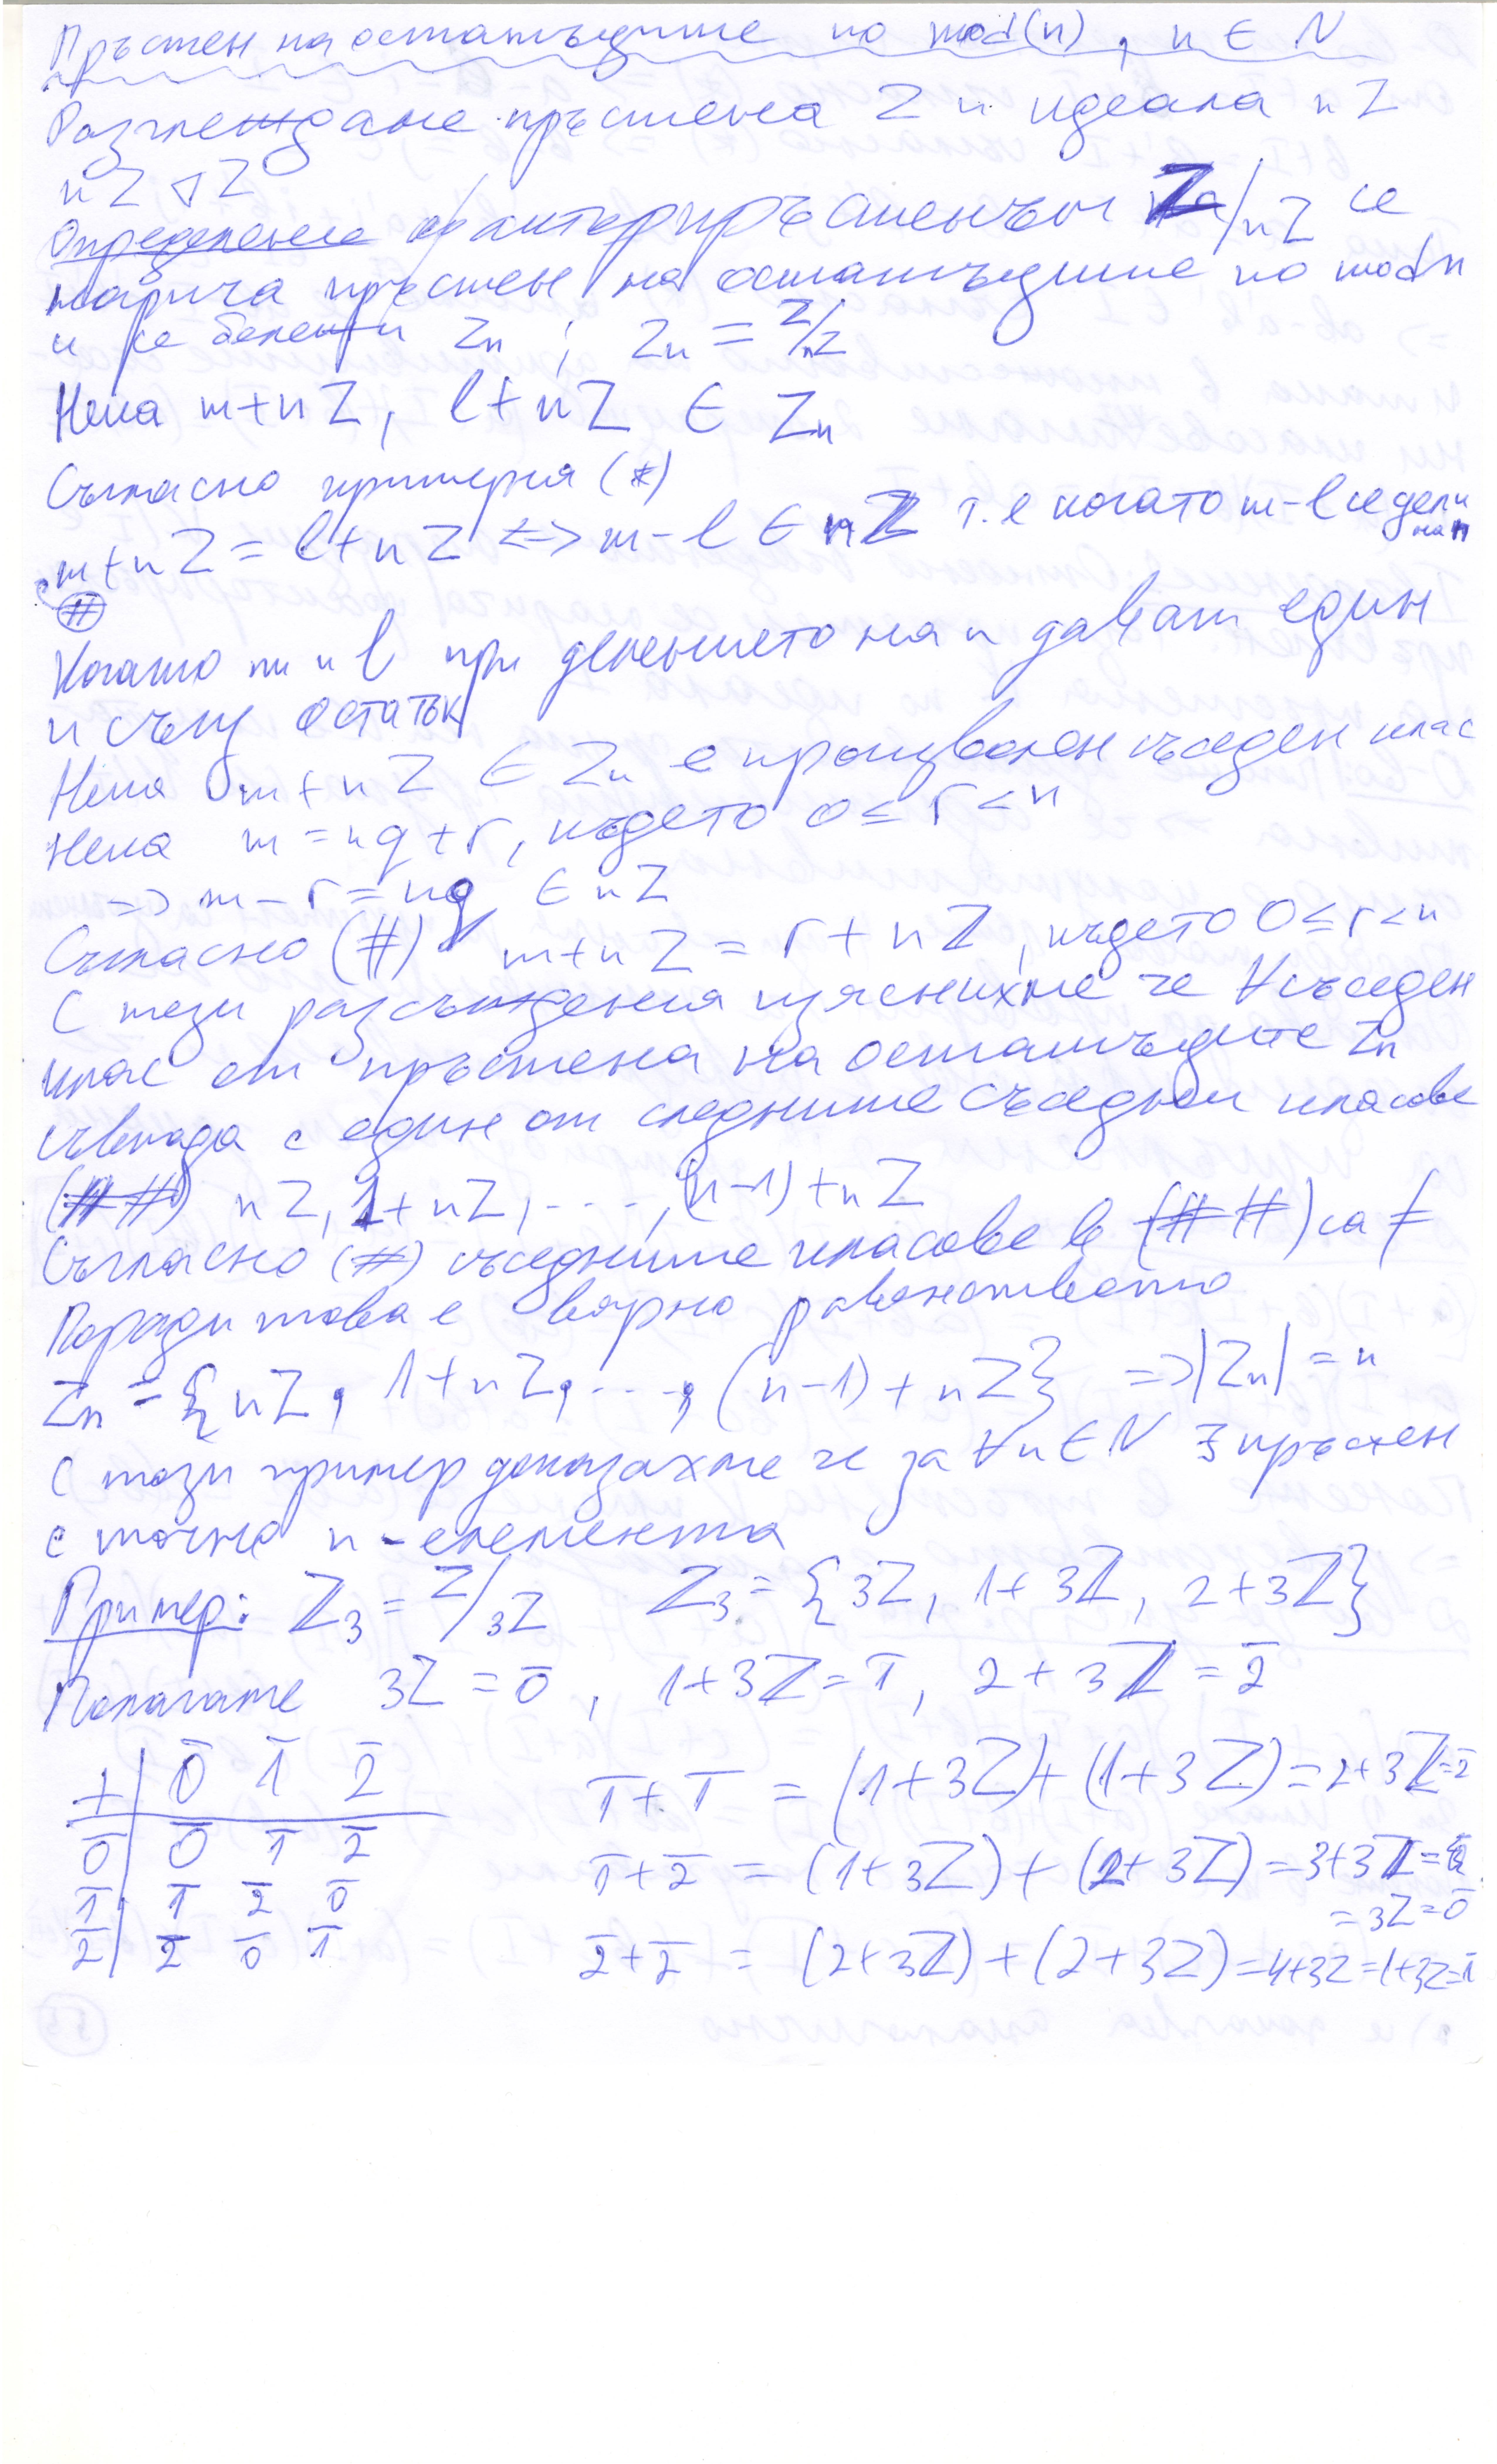 Пръстен на остатъците по mod(n), n ∈ N
Разглеждаме пръстена Z и идеала nZ
nZ ⊲ Z
Определение факторпръстенът Z/nZ се
нарича пръстен на остатъците по mod n
и се бележи Zn ; Zn = Z/nZ
Нека m+nZ, l+nZ ∈ Zn
Съгласно критерия (*)
m+nZ = l+nZ <=> m-l ∈ nZ т.е когато m-l се дели на n
(#)
Когато m и l при делението на n дават един
и същ остатък
Нека m+nZ ∈ Zn е произволен съседен клас
Нека m = nq+r, където 0 ≤ r < n
=> m-r = nq ∈ nZ
Съгласно (#) m+nZ = r+nZ, където 0 ≤ r < n
С тези разсъждения изяснихме че ∀ съседен
клас от пръстена на остатъците Zn
съвпада с един от следните съседни класове
(##) nZ, 1+nZ, ..., (n-1)+nZ
Съгласно (#) съседните класове в (##) са ≠
Поради това е вярно равенството
Zn = {nZ, 1+nZ, ..., (n-1)+nZ} => |Zn| = n
С този пример доказахме че за ∀n∈N ∃ пръстен
с точно n-елемента
Пример: Z₃ = Z/3Z Z₃ = {3Z, 1+3Z, 2+3Z}
Полагаме 3Z = 0̄, 1+3Z = 1̄, 2+3Z = 2̄
+ | 0̄ 1̄ 2̄
0̄ | 0̄ 1̄ 2̄
1̄ | 1̄ 2̄ 0̄
2̄ | 2̄ 0̄ 1̄
1̄+1̄ = (1+3Z)+(1+3Z) = 2+3Z = 2̄
1̄+2̄ = (1+3Z)+(2+3Z) = 3+3Z =
= 3Z = 0̄
2̄+2̄ = (2+3Z)+(2+3Z) = 4+3Z = 1+3Z = 1̄